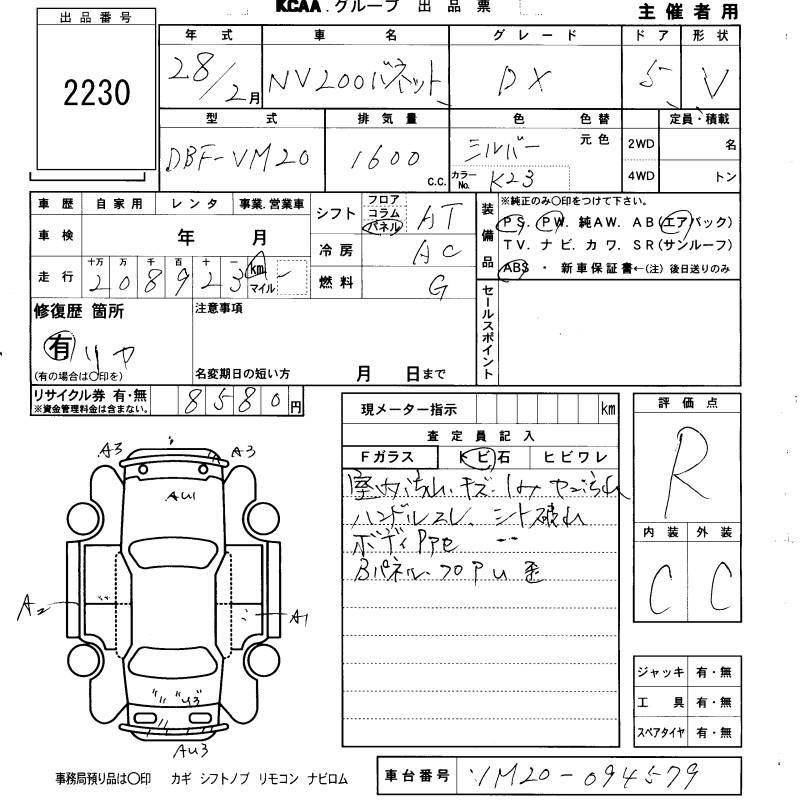 KCAA.グループ 出品票
主催者用
出品番号
2230
年式 車名 グレード ドア 形状
28/2月 NV200バネット DX 5 V
型式 排気量 色 色替 定員・積載
元色
DBF-VM20 1600 C.C. シルバー 2WD 名
カラーNo. K23 4WD トン
車歴 自家用 レンタ 事業.営業車
車検 年 月
走行 十万 万 千 百 十 一
2 0 8 9 2 3 km マイル
シフト フロア コラム パネル AT
冷房 AC
燃料 G
装備品
※純正のみ〇印をつけて下さい。
PS. PW. 純AW. AB(エアバック)
TV. ナビ. カワ. SR(サンルーフ)
ABS ・ 新車保証書←(注) 後日送りのみ
セールスポイント
修復歴 箇所
有 リヤ
(有の場合は〇印を)
注意事項
名変期日の短い方 月 日まで
リサイクル券 有・無 8580円
※資金管理料金は含まない。
現メーター指示 km
査定員記入
Fガラス トビ石 ヒビワレ
室内汚れ、キズ
ハンドルスレ、シート破れ
ボディ
Bパネル・フロア U 歪
評価点
R
内装 外装
C C
A3 A3
AU1
A2 A1
U3
AU3
ジャッキ 有・無
工具 有・無
スペアタイヤ 有・無
事務局預り品は〇印 カギ シフトノブ リモコン ナビロム
車台番号 VM20-094579